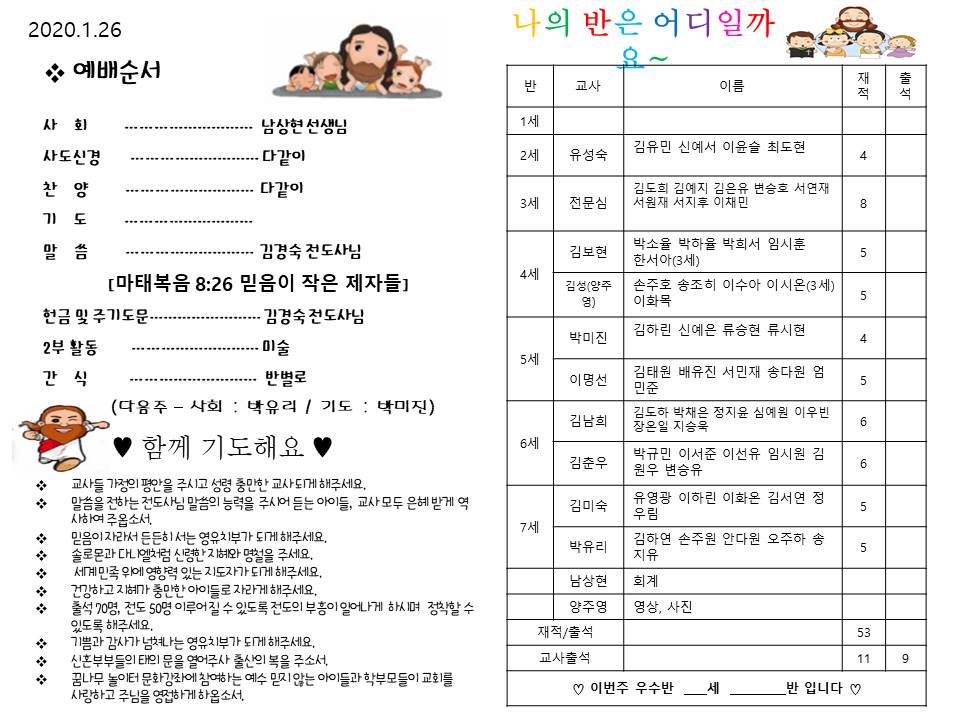 2020.1.26
❖ 예배순서
사 회 --------------------------- 남상현선생님
사도신경 --------------------------- 다같이
찬 양 --------------------------- 다같이
기 도 ---------------------------
말 씀 --------------------------- 김경숙 전도사님
[마태복음 8:26 믿음이 작은 제자들]
헌금 및 주기도문----------------------- 김경숙 전도사님
2부 활동 --------------------------- 미술
간 식 --------------------------- 반별로
(다음주 – 사회 : 박유리 / 기도 : 박미진)
♥ 함께 기도해요 ♥
❖ 교사들 가정의 평안을 주시고 성령 충만한 교사 되게 해주세요.
❖ 말씀을 전하는 전도사님 말씀의 능력을 주시어 듣는 아이들, 교사 모두 은혜 받게 역
사하여 주옵소서.
❖ 믿음이 자라서 든든히 서는 영유치부가 되게 해주세요.
❖ 솔로몬과 다니엘처럼 신령한 지혜와 명철을 주세요.
❖ 세계 민족 위에 영향력 있는 지도자가 되게 해주세요.
❖ 건강하고 지혜가 충만한 아이들로 자라게 해주세요.
❖ 출석 70명, 전도 50명 이루어 질 수 있도록 전도의 부흥이 일어나게 하시며 정착할 수
있도록 해주세요.
❖ 기쁨과 감사가 넘쳐나는 영유치부가 되게 해주세요.
❖ 신혼부부들의 태의 문을 열어주사 출산의 복을 주소서.
❖ 꿈나무 놀이터 문화강좌에 참여하는 예수 믿지 않는 아이들과 학부모들이 교회를
사랑하고 주님을 영접하게 하옵소서.
나의 반은 어디일까
요~
반 교사 이름 재적 출석
1세
2세 유성숙 김유민 신예서 이윤슬 최도현 4
3세 전문심 김도희 김예지 김은유 변승호 서연재
서원재 서지후 이채민 8
4세 김보현 박소율 박하율 박희서 임시훈
한서아(3세) 5
김성(양주영) 손주호 송조히 이수아 이시온(3세)
이화목 5
5세 박미진 김하린 신예은 류승현 류시현 4
이명선 김태원 배유진 서민재 송다원 엄
민준 5
6세 김남희 김도하 박채은 정지윤 심예원 이우빈
장온일 지승욱 6
김춘우 박규민 이서준 이선유 임시원 김
원우 변승유 6
7세 김미숙 유영광 이하린 이화온 김서연 정
우림 5
박유리 김하연 손주원 안다원 오주하 송
지유 5
남상현 회계
양주영 영상, 사진
재적/출석 53
교사출석 11 9
♡ 이번주 우수반 ___세 _______반 입니다 ♡